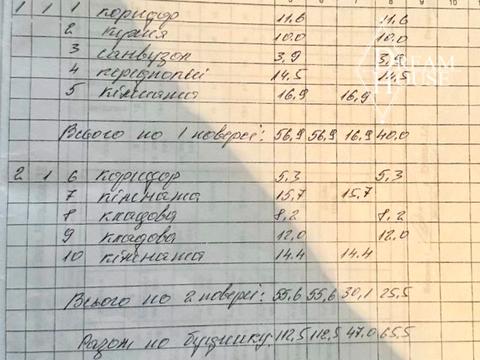 1 1 1 коридор 11.6 11.6
2 кухня 10.0 10.0
3 санвузол 3,9 3,9
4 передпокій 14.5 14.5
5 кімната 16,9 16,9
Всього по 1 поверсі: 56,9 56,9 16,9 40.0
2 1 6 коридор 5,3 5,3
7 кімната 15,7 15,7
8 кладова 8,2 8,2
9 кладова 12,0 12,0
10 кімната 14.4 14.4
Всього по 2 поверсі: 55,6 55,6 30,1 25,5
Разом по будинку: 112,5 112,5 47.0 65,5
DREAM HOUSE